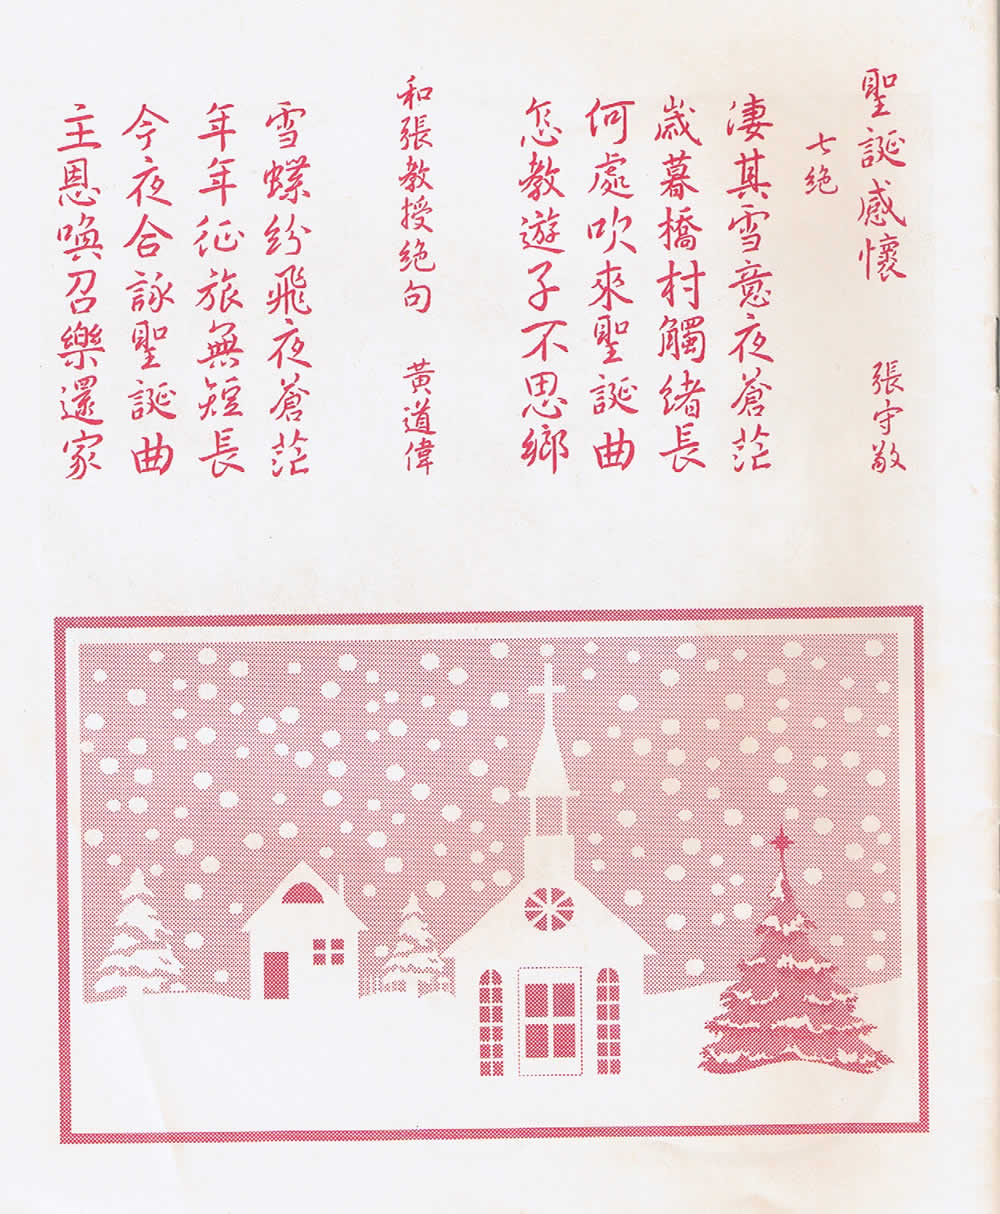 聖誕感懷 張守敬
七絶
淒其雪意夜蒼茫
歲暮橋村觸緒長
何處吹來聖誕曲
怎教遊子不思鄉
和張教授絶句 黃道偉
雪蝶紛飛夜蒼茫
年年征旅無短長
今夜合詠聖誕曲
主恩喚召樂還家